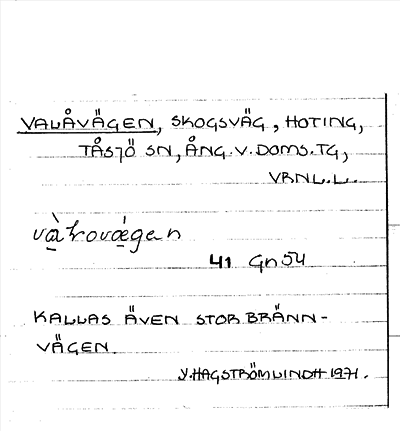 VALÅVÄGEN, SKOGSVÄG, HOTING,
TÅSJÖ SN, ÅNG. V. DOMS. TG,
VBNL.L.
41 Gn54
KALLAS ÄVEN STORBRÄNN-
VÄGEN.
Y. HAGSTRÖM LINDH 1971.